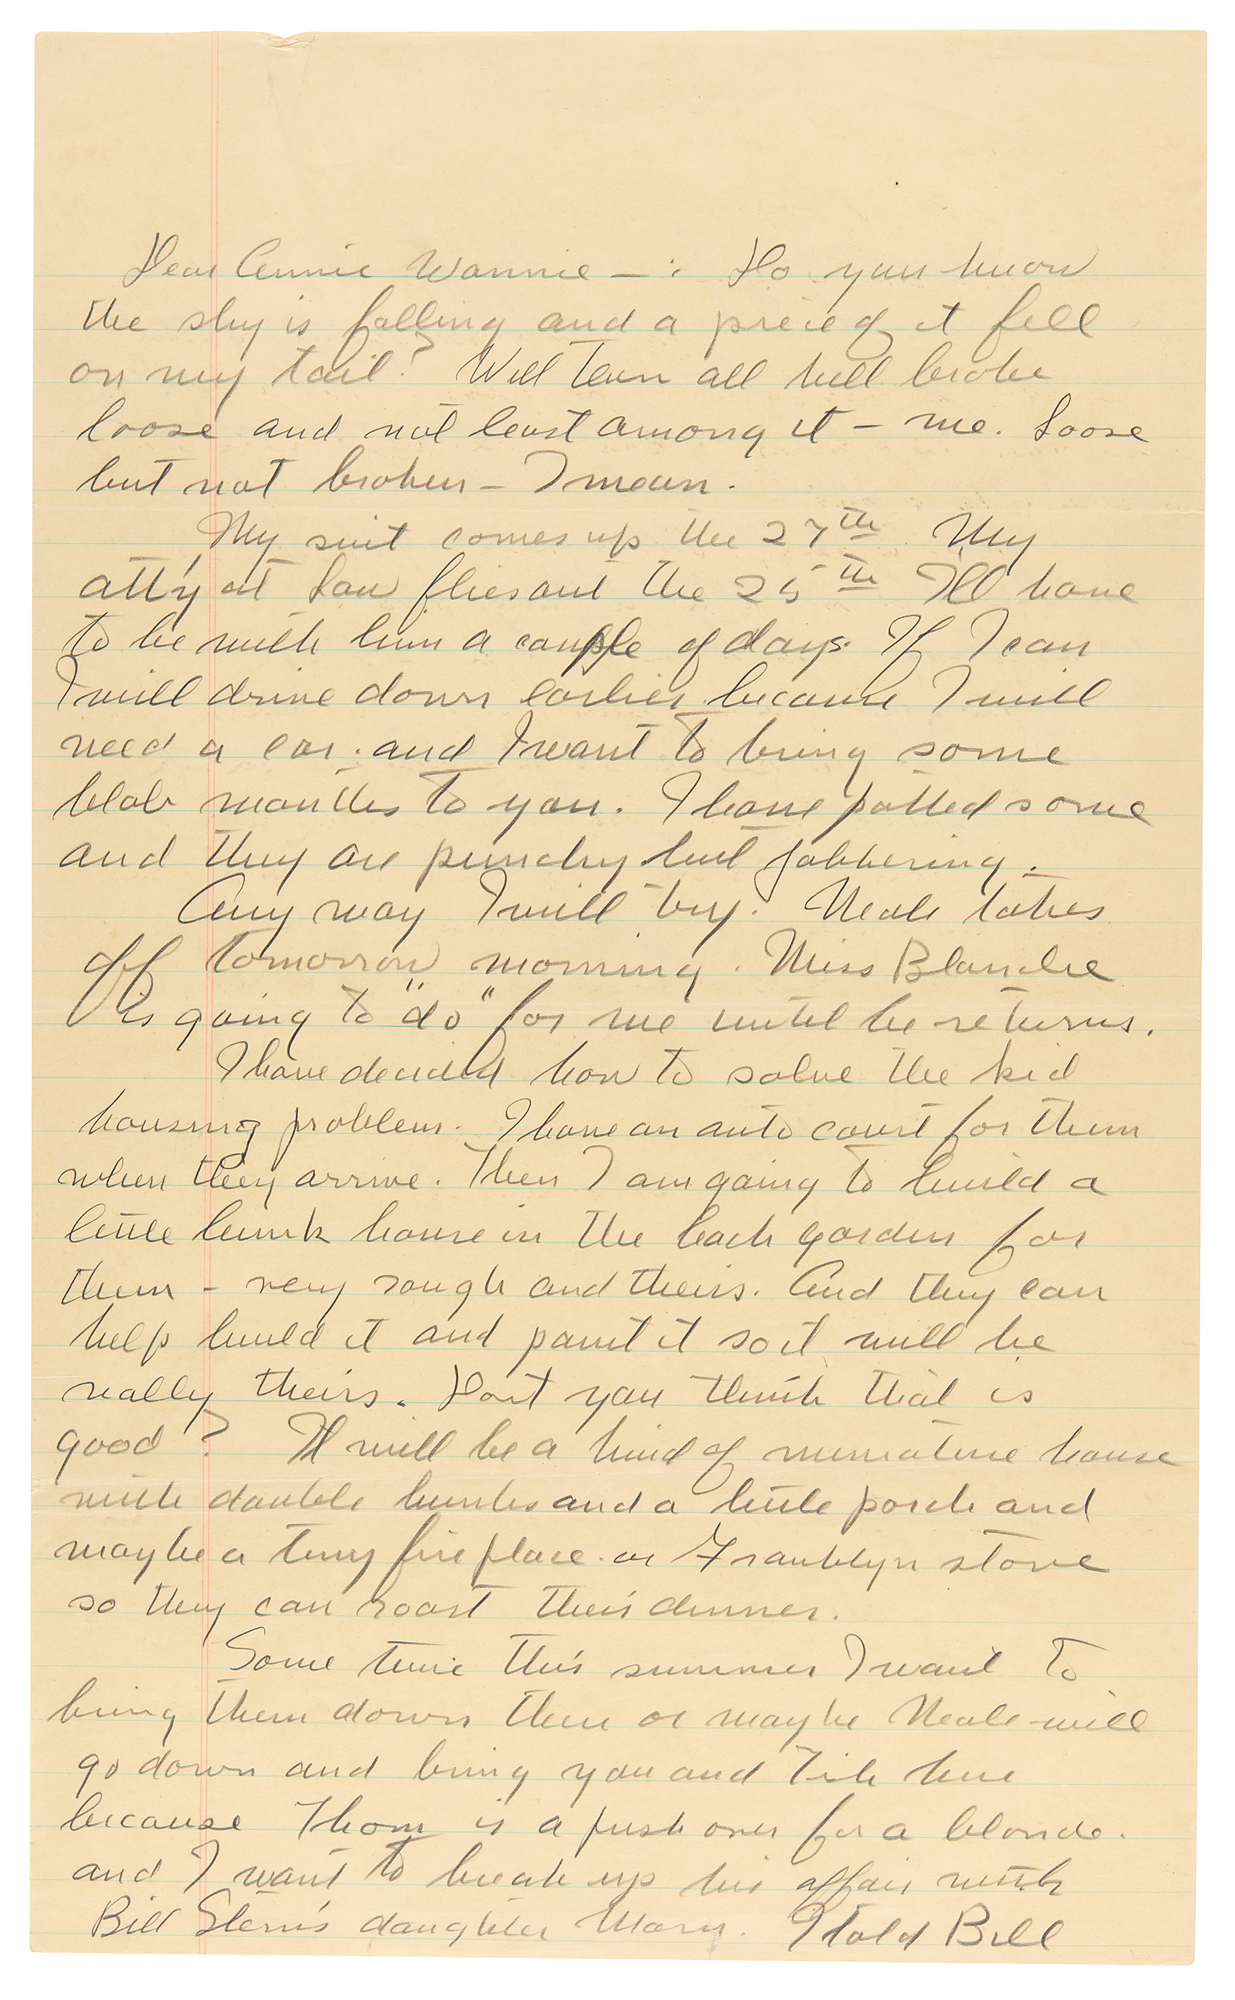 Dear Annie Wannie — : Do you know
the sky is falling and a piece of it fell
on my tail? Well team all hell broke
loose and not least among it — me. Loose
but not broken — I mean.
My suit comes up the 27th My
att'y at law flies out the 25th I'll have
to be with him a couple of days. If I can
I will drive down earlier because I will
need a car. and I want to bring some
blab mouths to you. I have potted some
and they are punchy but jabbering.
Any way I will try. Neale takes
off tomorrow morning. Miss Blanche
is going to "do" for me until he returns.
I have decided how to solve the kid
housing problem. I have an auto court for them
when they arrive. Then I am going to build a
little bunk house in the back garden for
them – very rough and theirs. And they can
help build it and paint it so it will be
really theirs. Dont you think that is
good? It will be a kind of miniature house
with double bunks and a little porch and
maybe a tiny fire place or Franklyn stove
so they can roast their dinner.
Some time this summer I want to
bring them down there or maybe Neale will
go down and bring you and here
because Thom is a push over for a blonde.
and I want to break up his affair with
Bill Stern's daughter Mary. I told Bill